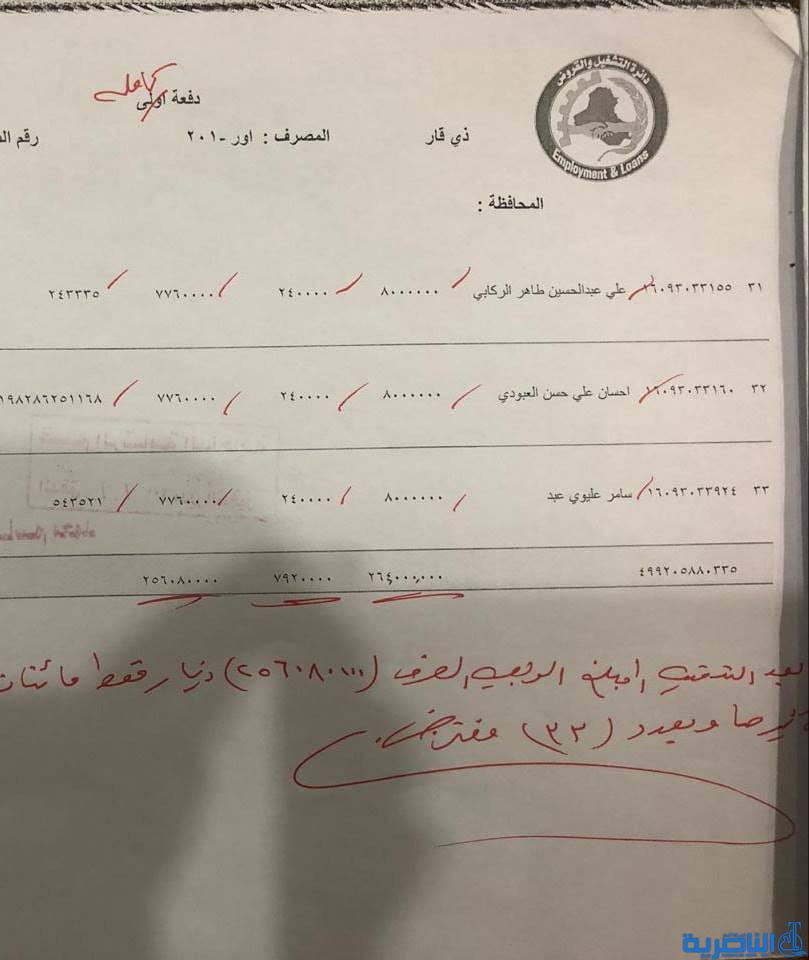 دائرة التشغيل والقروض
Employment & Loans
كاملة
دفعة اولى
ذي قار المصرف : اور -٢٠١ رقم
المحافظة :
٣١ ١٦٠٩٣٠٣٣١٥٥ علي عبدالحسين طاهر الركابي ٨٠٠٠٠٠٠ ٢٤٠٠٠٠ ٧٧٦٠٠٠٠ ٢٤٣٣٣٥
٣٢ ١٦٠٩٣٠٣٣١٦٠ احسان علي حسن العبودي ٨٠٠٠٠٠٠ ٢٤٠٠٠٠ ٧٧٦٠٠٠٠ ١٩٨٢٨٦٢٥١١٦٨
٣٣ ١٦٠٩٣٠٣٣٩٢٤ سامر عليوي عبد ٨٠٠٠٠٠٠ ٢٤٠٠٠٠ ٧٧٦٠٠٠٠ ٥٤٣٥٢١
٤٩٩٢٠٥٨٨٠٣٣٥ ٢٦٤٠٠٠,٠٠٠ ٧٩٢٠٠٠٠ ٢٥٦٠٨٠٠٠٠
بعد التدقيق المبلغ الواجب الصرف (٢٥٦٠٨٠٠٠٠) دينار فقط مائتان
وبعدد (٣٣) مقترض
الناصرية